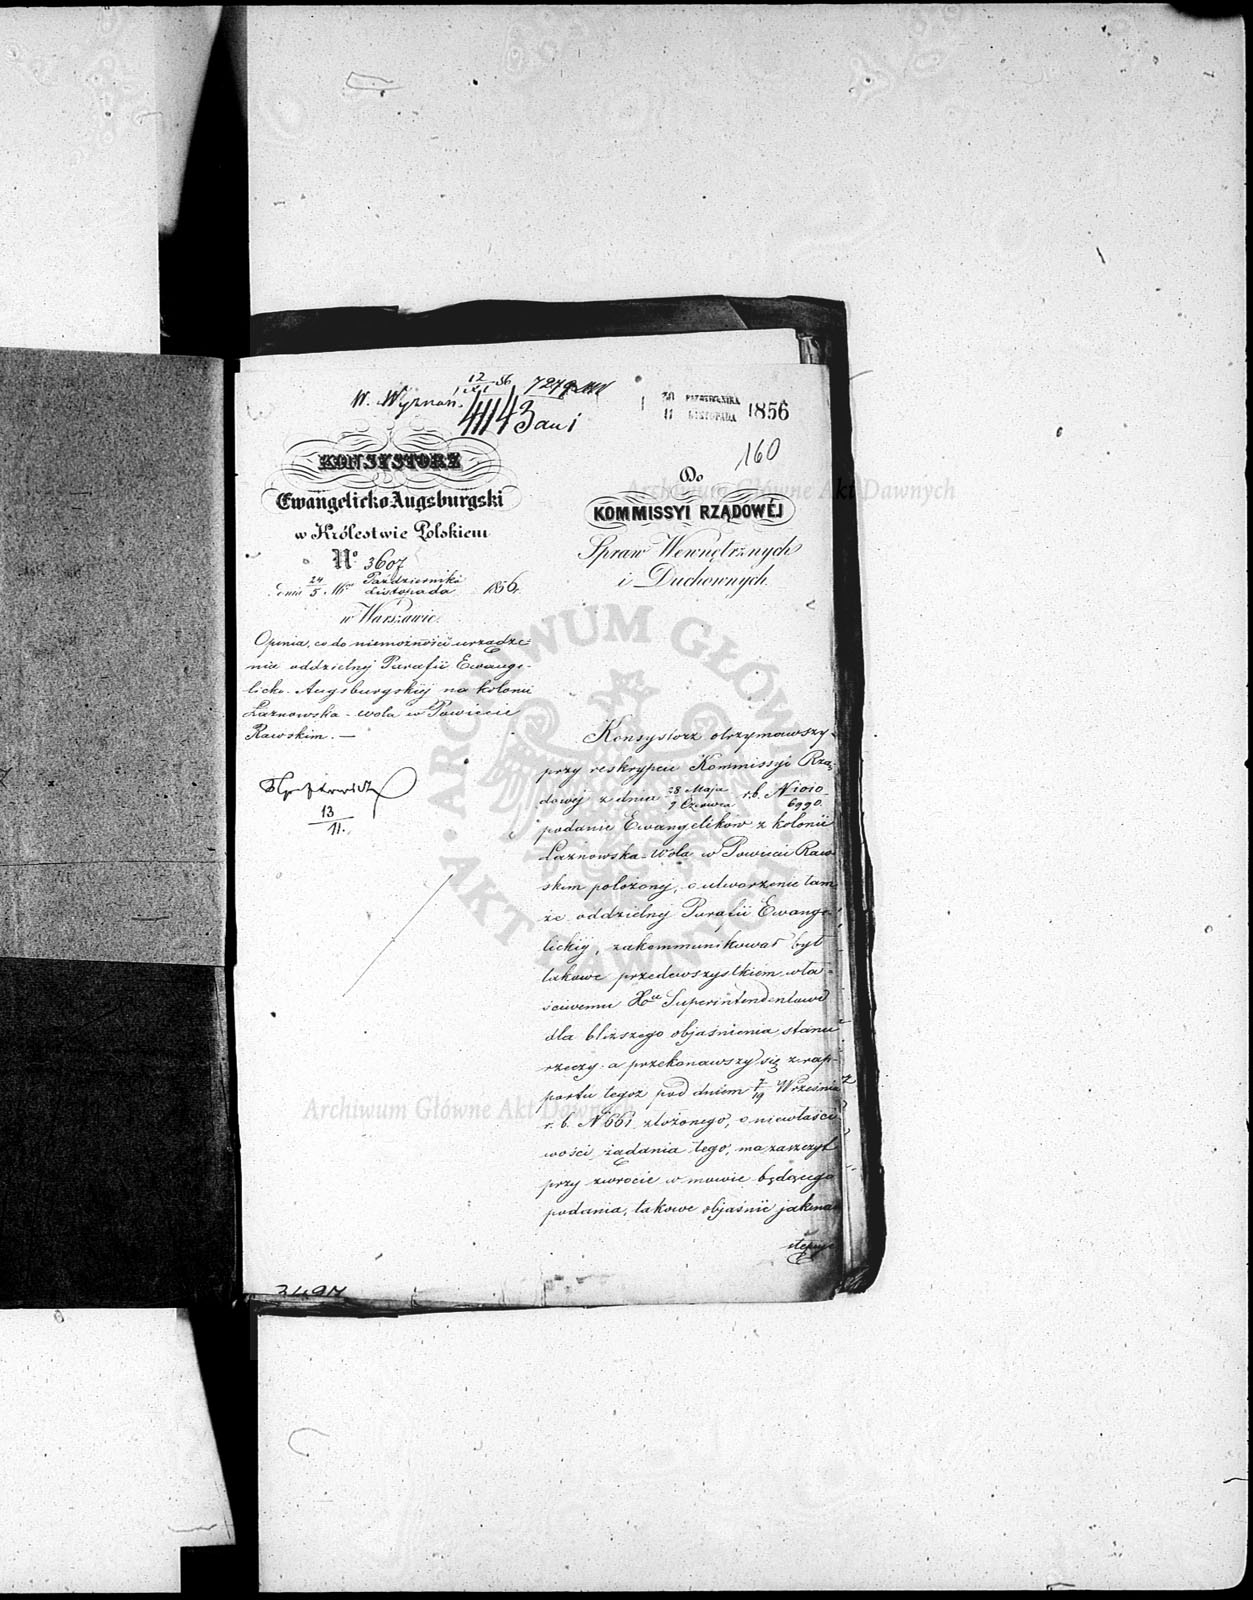 W. Wyznań. 12/XI 56 7279
4143
30 PAZDZIERNIKA
11 LISTOPADA 1856
160
KONSYSTORZ
Ewangelicko Augsburgski
w Królestwie Polskiem
No 3607
dnia 24/5 Mca Października/Listopada 1856 r.
w Warszawie.
Opinia, co do niemożności urządze-
nia oddzielnej Parafii Ewange-
licko-Augsburgskiej na kolonii
Łaznowska-wola w Powiecie
Rawskim. —
13
11.
Do
KOMMISSYI RZĄDOWÉJ
Spraw Wewnętrznych
i Duchownych.
Konsystorz otrzymawszy
przy reskrypcie Kommissyi Rzą-
dowej z dnia 28 Maja/9 Czerwca r.b. N 1010/6990.
podanie Ewangelików z kolonii
Łaznowska-Wola w Powiecie Raw-
skim położonej, o utworzenie tam-
że oddzielnej Parafii Ewange-
lickiej, zakommunikował był
takowe przedewszystkiem wła-
ściwemu Xdzu Superintendentowi
dla bliższego objaśnienia stanu
rzeczy a przekonawszy się z rap-
portu tegoż pod dniem 7/19 Września
r. b. N 661 złożonego, o niewłaści-
wości żądania tego, ma zaszczyt
przy zwrocie w mowie będącego
podania, takowe objaśnić jak na-
stępuje
3497
Archiwum Główne Akt Dawnych
ARCHIWUM GŁÓWNE AKT DAWNYCH
Archiwum Główne Akt Dawnych